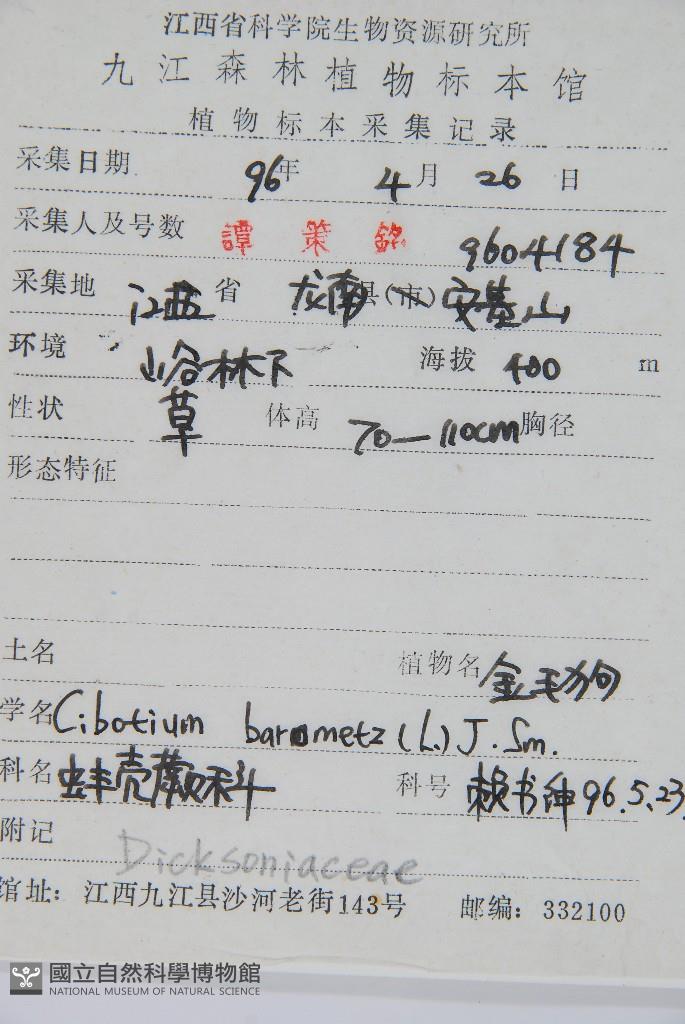 江西省科学院生物资源研究所
九江森林植物标本馆
植物标本采集记录
采集日期 96年 4月 26日
采集人及号数 譚策銘 9604184
采集地 江西省 龙南县(市)安基山
环境 山谷林下 海拔 400 m
性状 草 体高 70—110cm 胸径
形态特征
土名 植物名 金毛狗
学名 Cibotium barometz (L.) J. Sm.
科名 蚌壳蕨科 科号 赖书绅 96.5.23.
附记 Dicksoniaceae
馆址：江西九江县沙河老街143号 邮编：332100
國立自然科學博物館
NATIONAL MUSEUM OF NATURAL SCIENCE